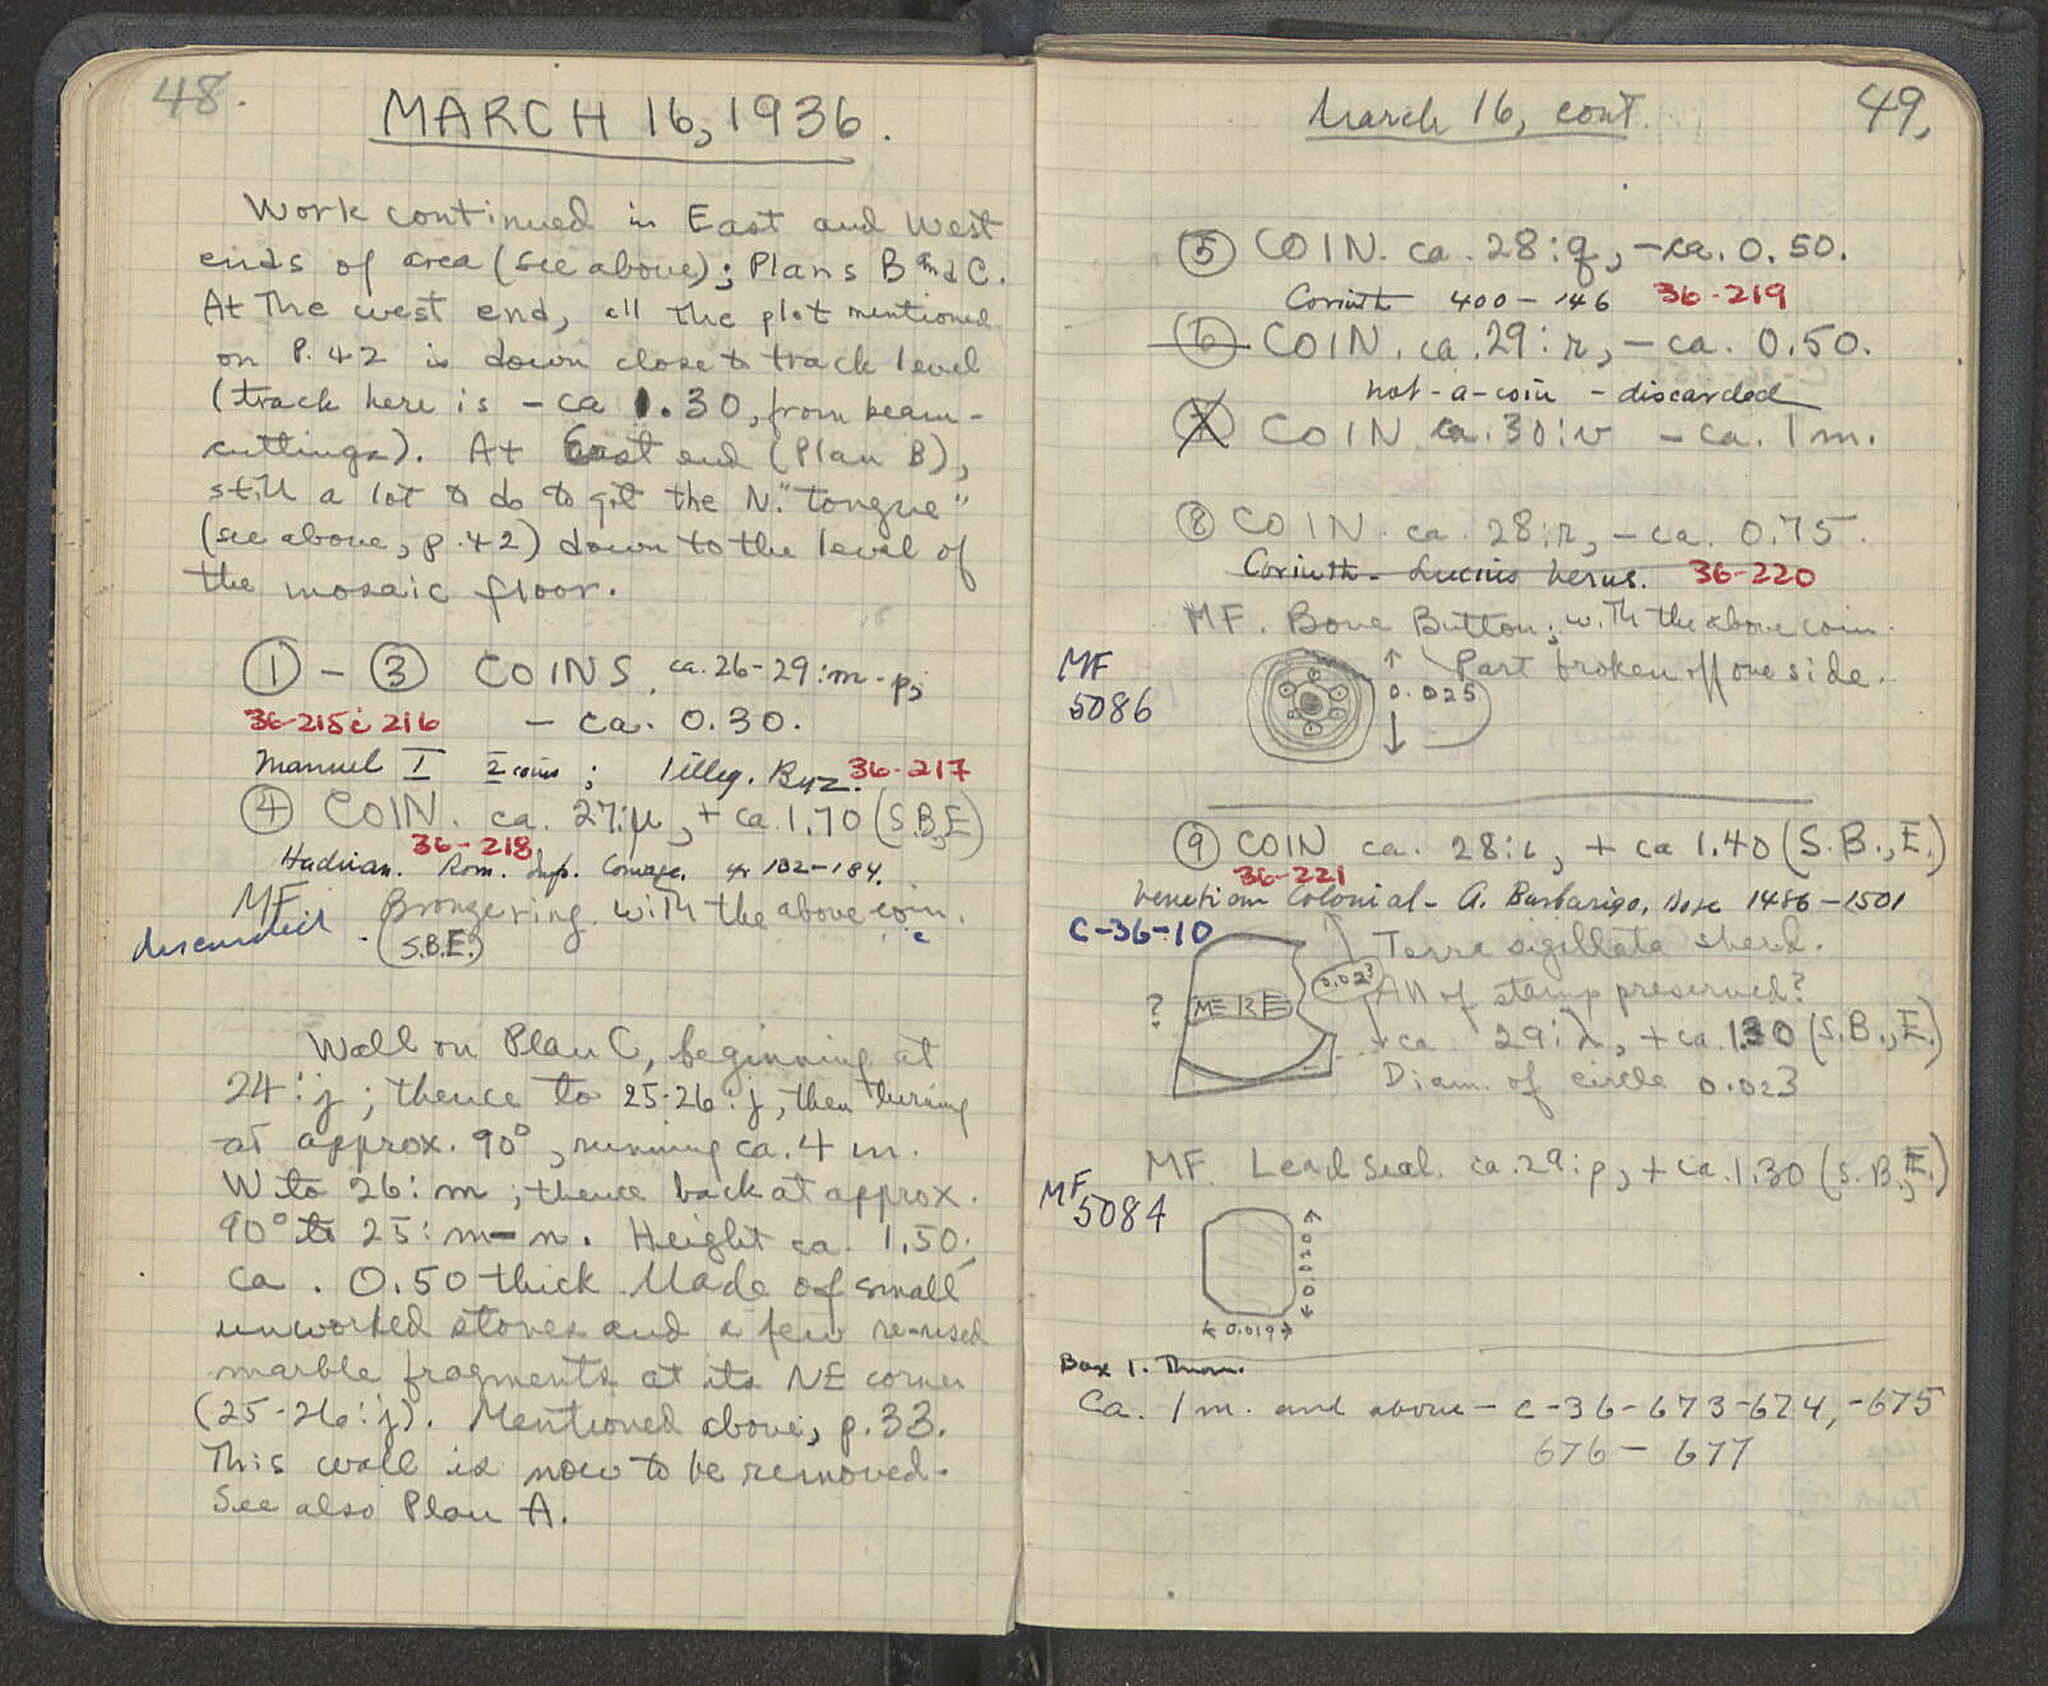 48.
MARCH 16, 1936.
Work continued in East and West
ends of area (see above); Plans B and C.
At the west end, all the plot mentioned
on P. 42 is down close to track level
(track here is - ca 1.30, from beam-
cuttings). At East end (Plan B),
still a lot to do to get the N. "tongue"
(see above, p. 42) down to the level of
the mosaic floor.
① - ③ COINS. ca. 26-29:m-p;
36-215 & 216 - ca. 0.30.
Manuel I 2 coins ; 1 illeg. Byz. 36-217
④ COIN. ca. 27:μ, + ca 1.70 (S.B.E)
36-218
Hadrian. Rom. Imp. Coinage, 182-184.
MF Bronze ring with the above coin.
discarded (S.B.E.)
Wall on Plan C, beginning at
24:j; thence to 25-26:j, then turning
at approx. 90°, running ca. 4 m.
W to 26:m; thence back at approx.
90° to 25:m-n. Height ca. 1.50;
ca. 0.50 thick. Made of small
unworked stones and a few re-used
marble fragments at its NE corner
(25-26:j). Mentioned above, p. 33.
This wall is now to be removed.
See also Plan A.
March 16, cont. 49,
⑤ COIN. ca. 28:q, - ca. 0.50.
Corinth 400-146 36-219
⑥ COIN. ca. 29:r, - ca. 0.50.
not-a-coin - discarded
⑦ COIN ca. 30:v - ca. 1 m.
⑧ COIN. ca. 28:r, - ca. 0.75.
Corinth - Lucius Verus. 36-220
MF. Bone Button; with the above coin.
MF 5086
Part broken off one side.
0.025
⑨ COIN ca. 28:ι, + ca 1.40 (S.B.,E.)
36-221
Venetian Colonial - A. Barbarigo, Doge 1486-1501
C-36-10
Terra sigillata sherd.
0.023
All of stamp preserved?
? MERE
ca. 29:λ, + ca. 1.30 (S.B.,E.)
Diam. of circle 0.023
MF. Lead Seal. ca. 29:p, + ca. 1.30 (S.B.,E.)
MF 5084
0.020
0.019
Box 1.
Ca. 1 m. and above - C-36-673-674, -675
676 - 677